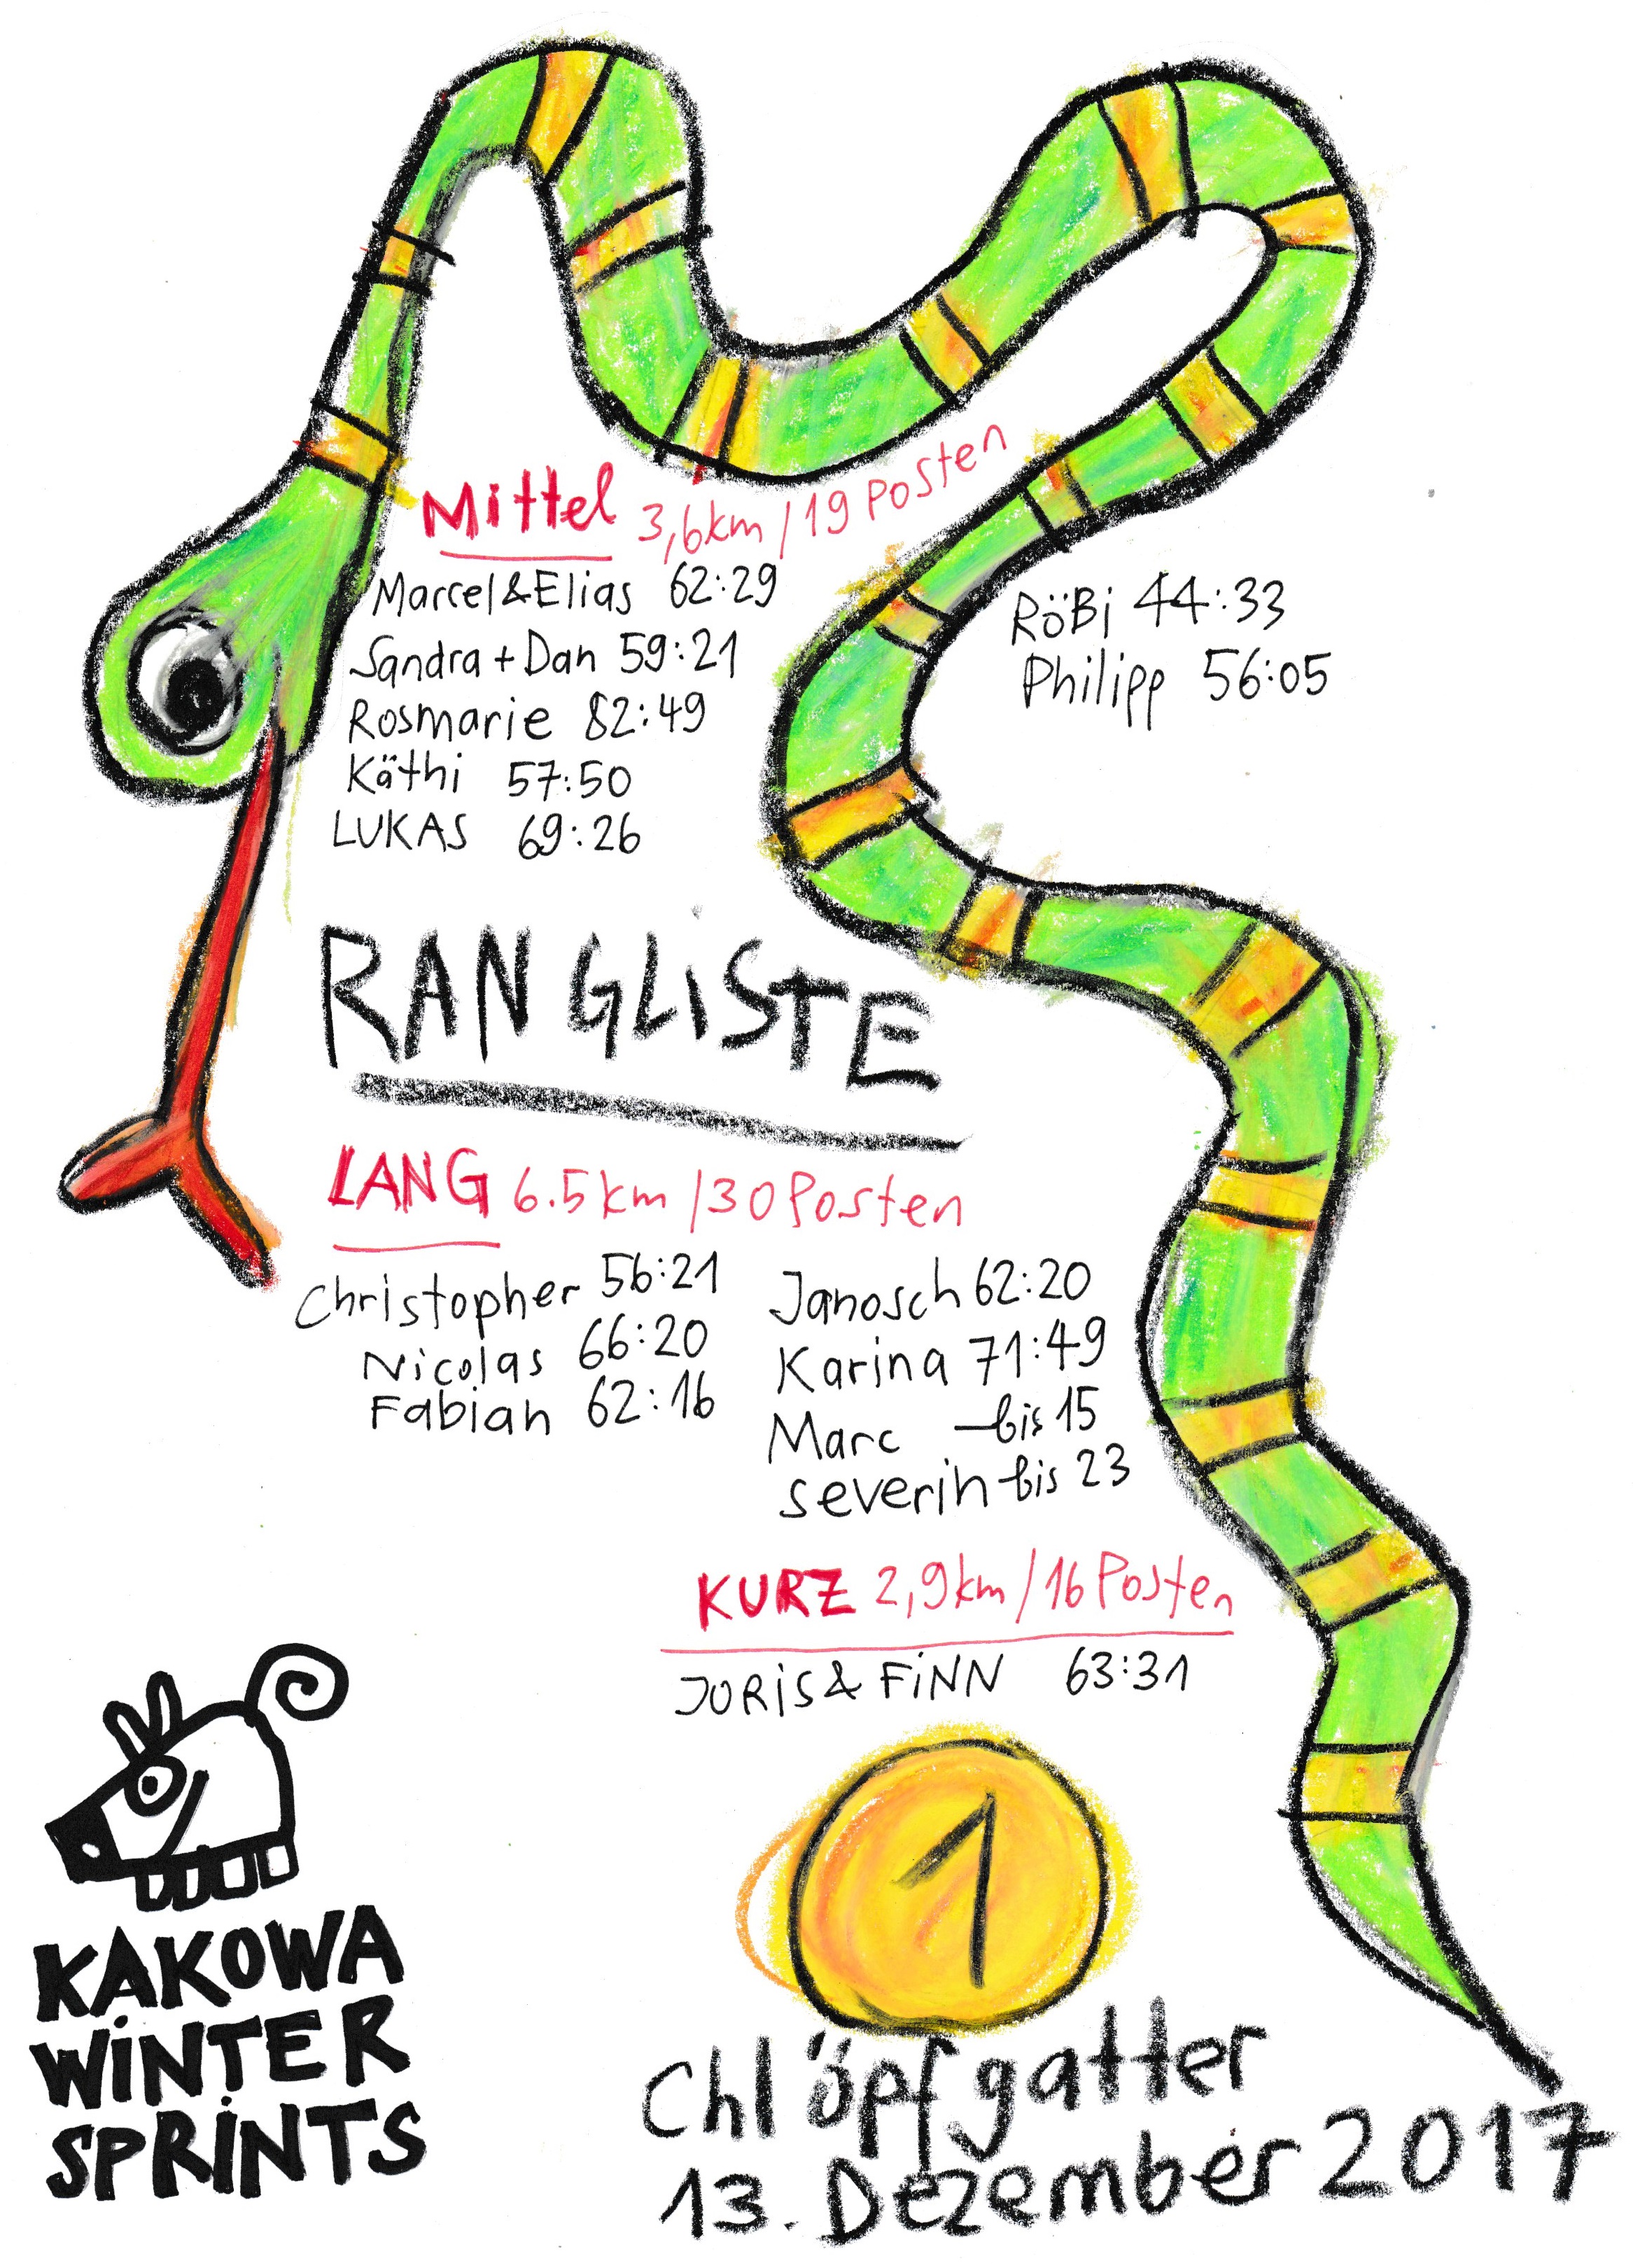 Mittel 3,6km / 19 Posten
Marcel & Elias 62:29
Sandra + Dan 59:21
Rosmarie 82:49
Käthi 57:50
LUKAS 69:26
RöBi 44:33
Philipp 56:05
RANGLiSTE
LANG 6.5 km / 30 Posten
Christopher 56:21
Nicolas 66:20
Fabian 62:16
Janosch 62:20
Karina 71:49
Marc – bis 15
Severin – bis 23
KURZ 2,9 km / 16 Posten
JORiS & FiNN 63:31
1
Chlöpfgatter
13. Dezember 2017
KAKOWA
WiNTER
SPRiNTS